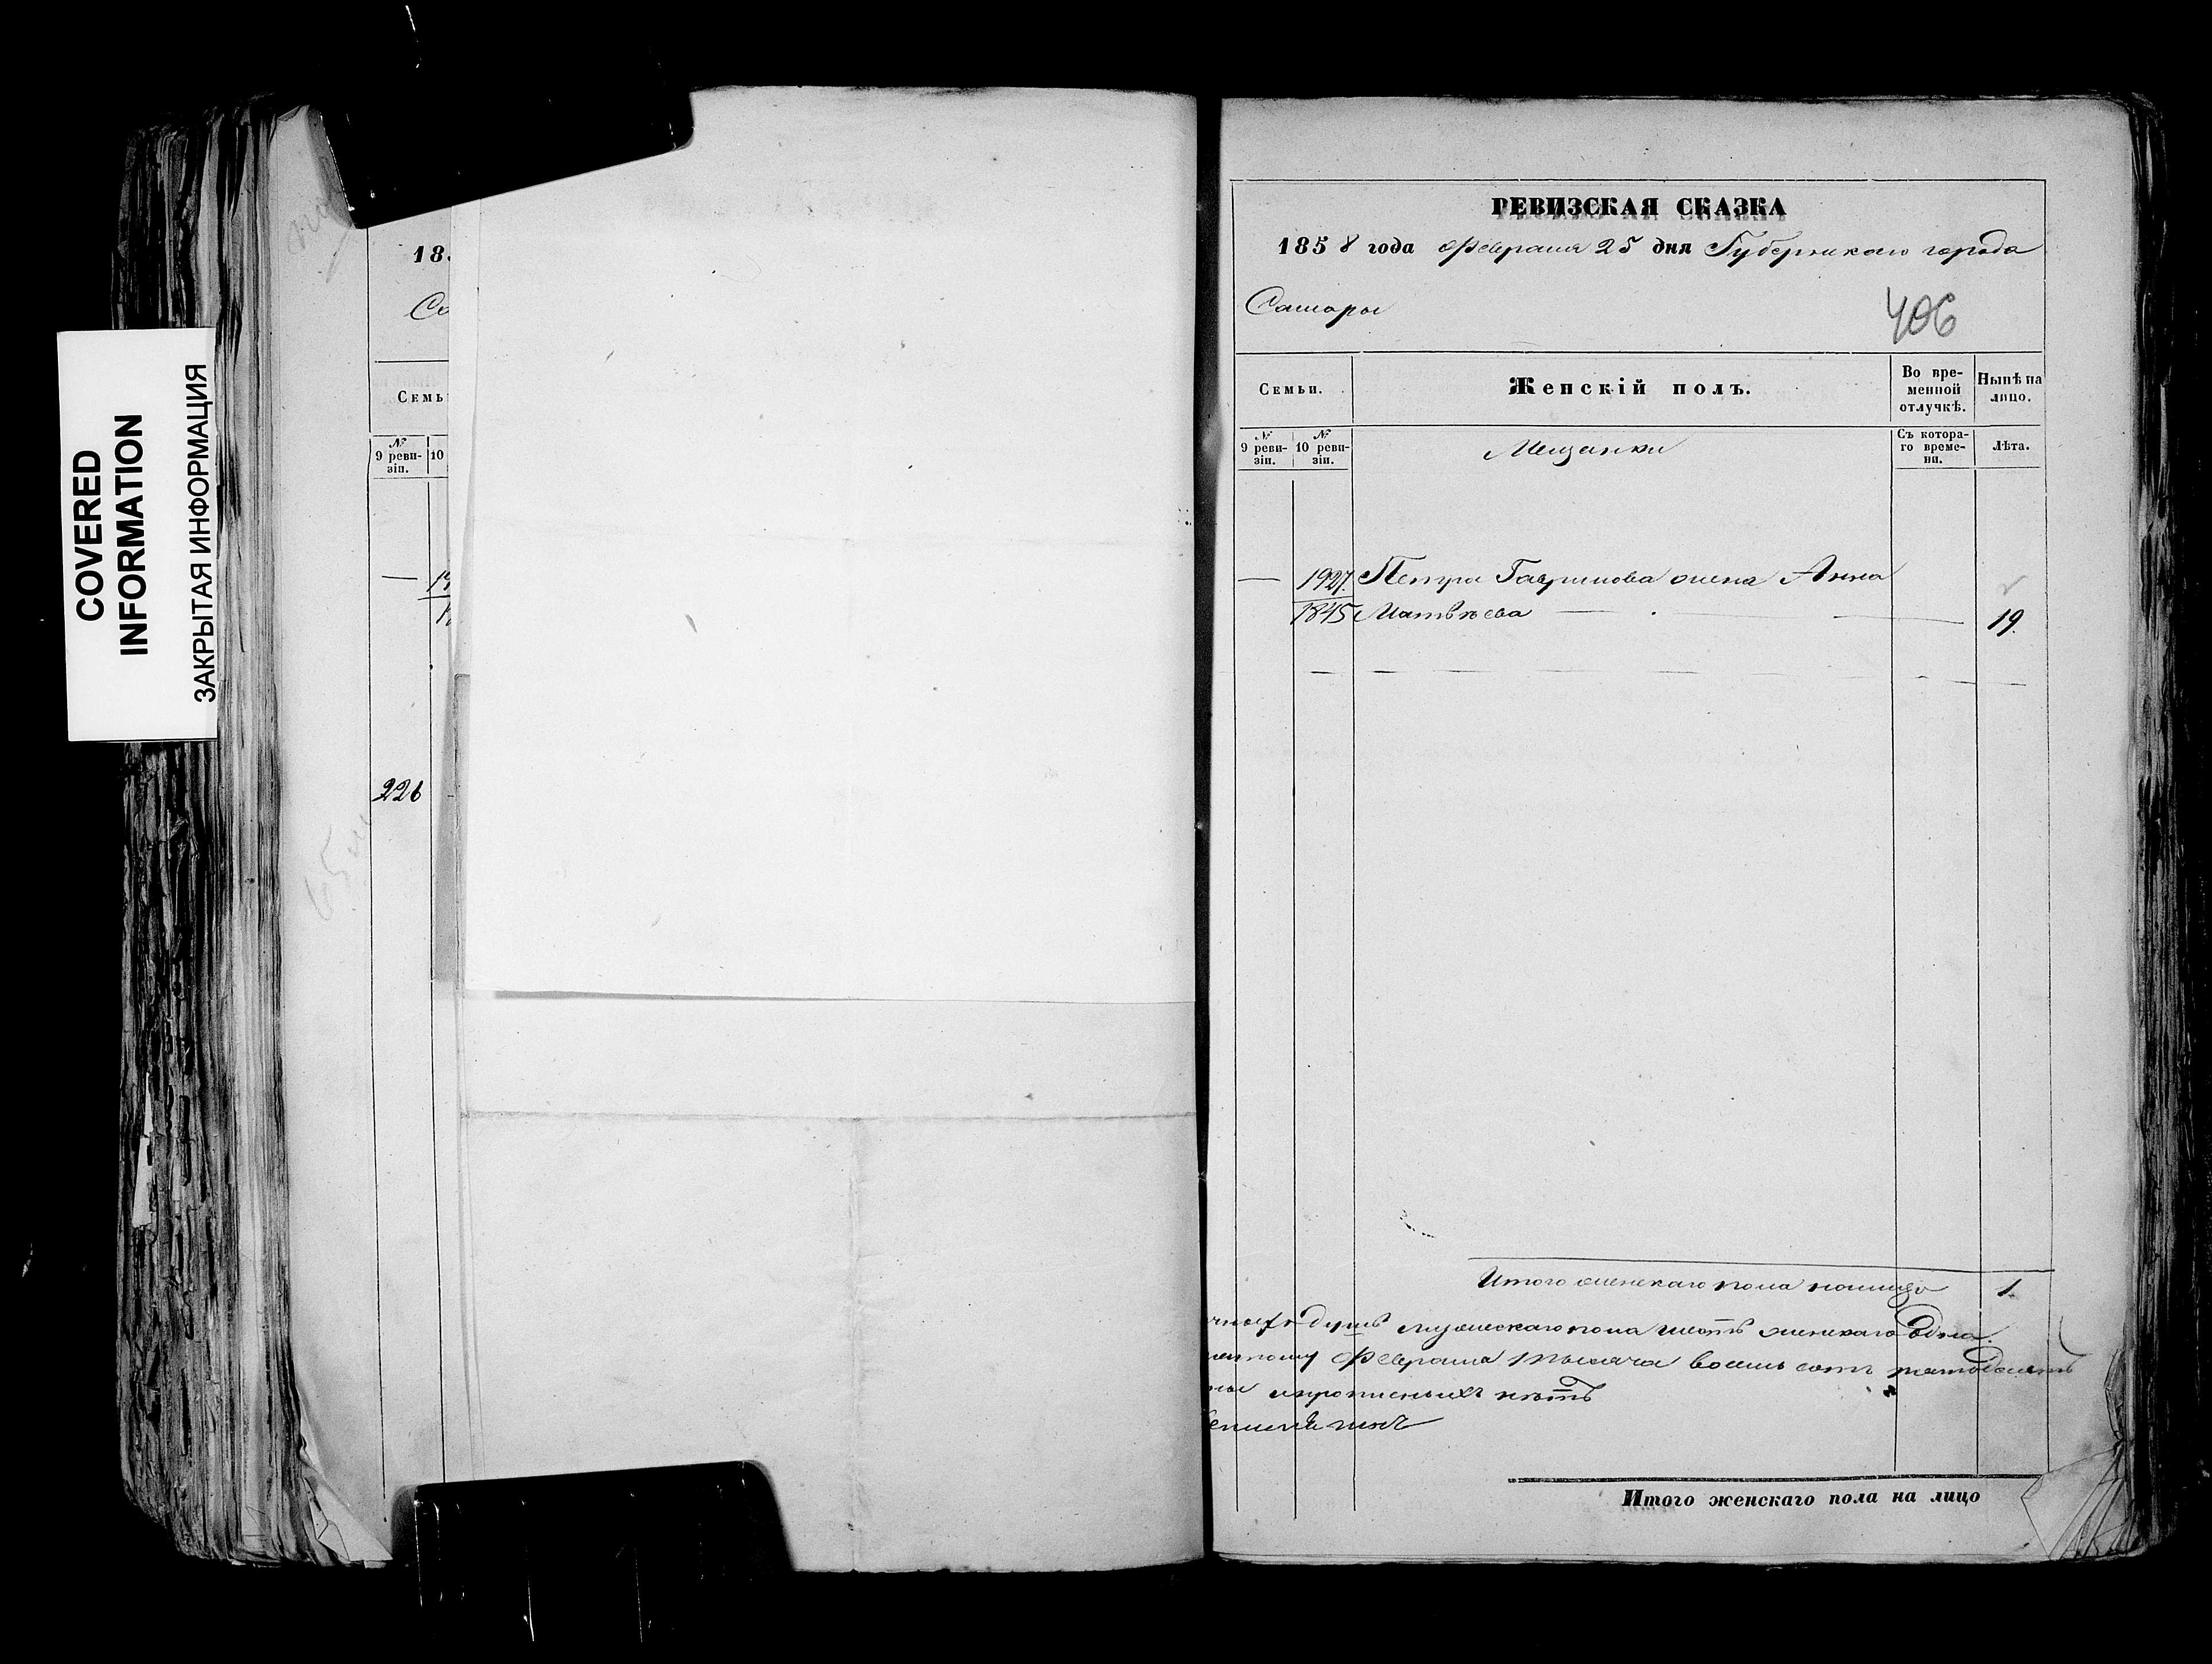 COVERED
INFORMATION
ЗАКРЫТАЯ ИНФОРМАЦИЯ
18
Са
Семь
№
9 реви-
зіи.
10
226
РЕВИЗСКАЯ СКАЗКА
1858 года Февраля 25 дня Губернскаго города
Самары
406
Семьи.
Женскій полъ.
Во вре-
менной
отлучкѣ.
Нынѣ на
лицо.
№
9 реви-
зіи.
№
10 реви-
зіи.
Мещанки
Съ котора-
го време-
ни.
Лѣта.
— 1927. Петра Гаврилова жена Анна
1845 Матвѣева — 19.
Итого женскаго пола налицо 1.
душъ мужескаго пола шесть женскаго одна.
Февраля тысяча восемь сотъ пятьдесятъ
прописныхъ нѣтъ
Итого женскаго пола на лицо